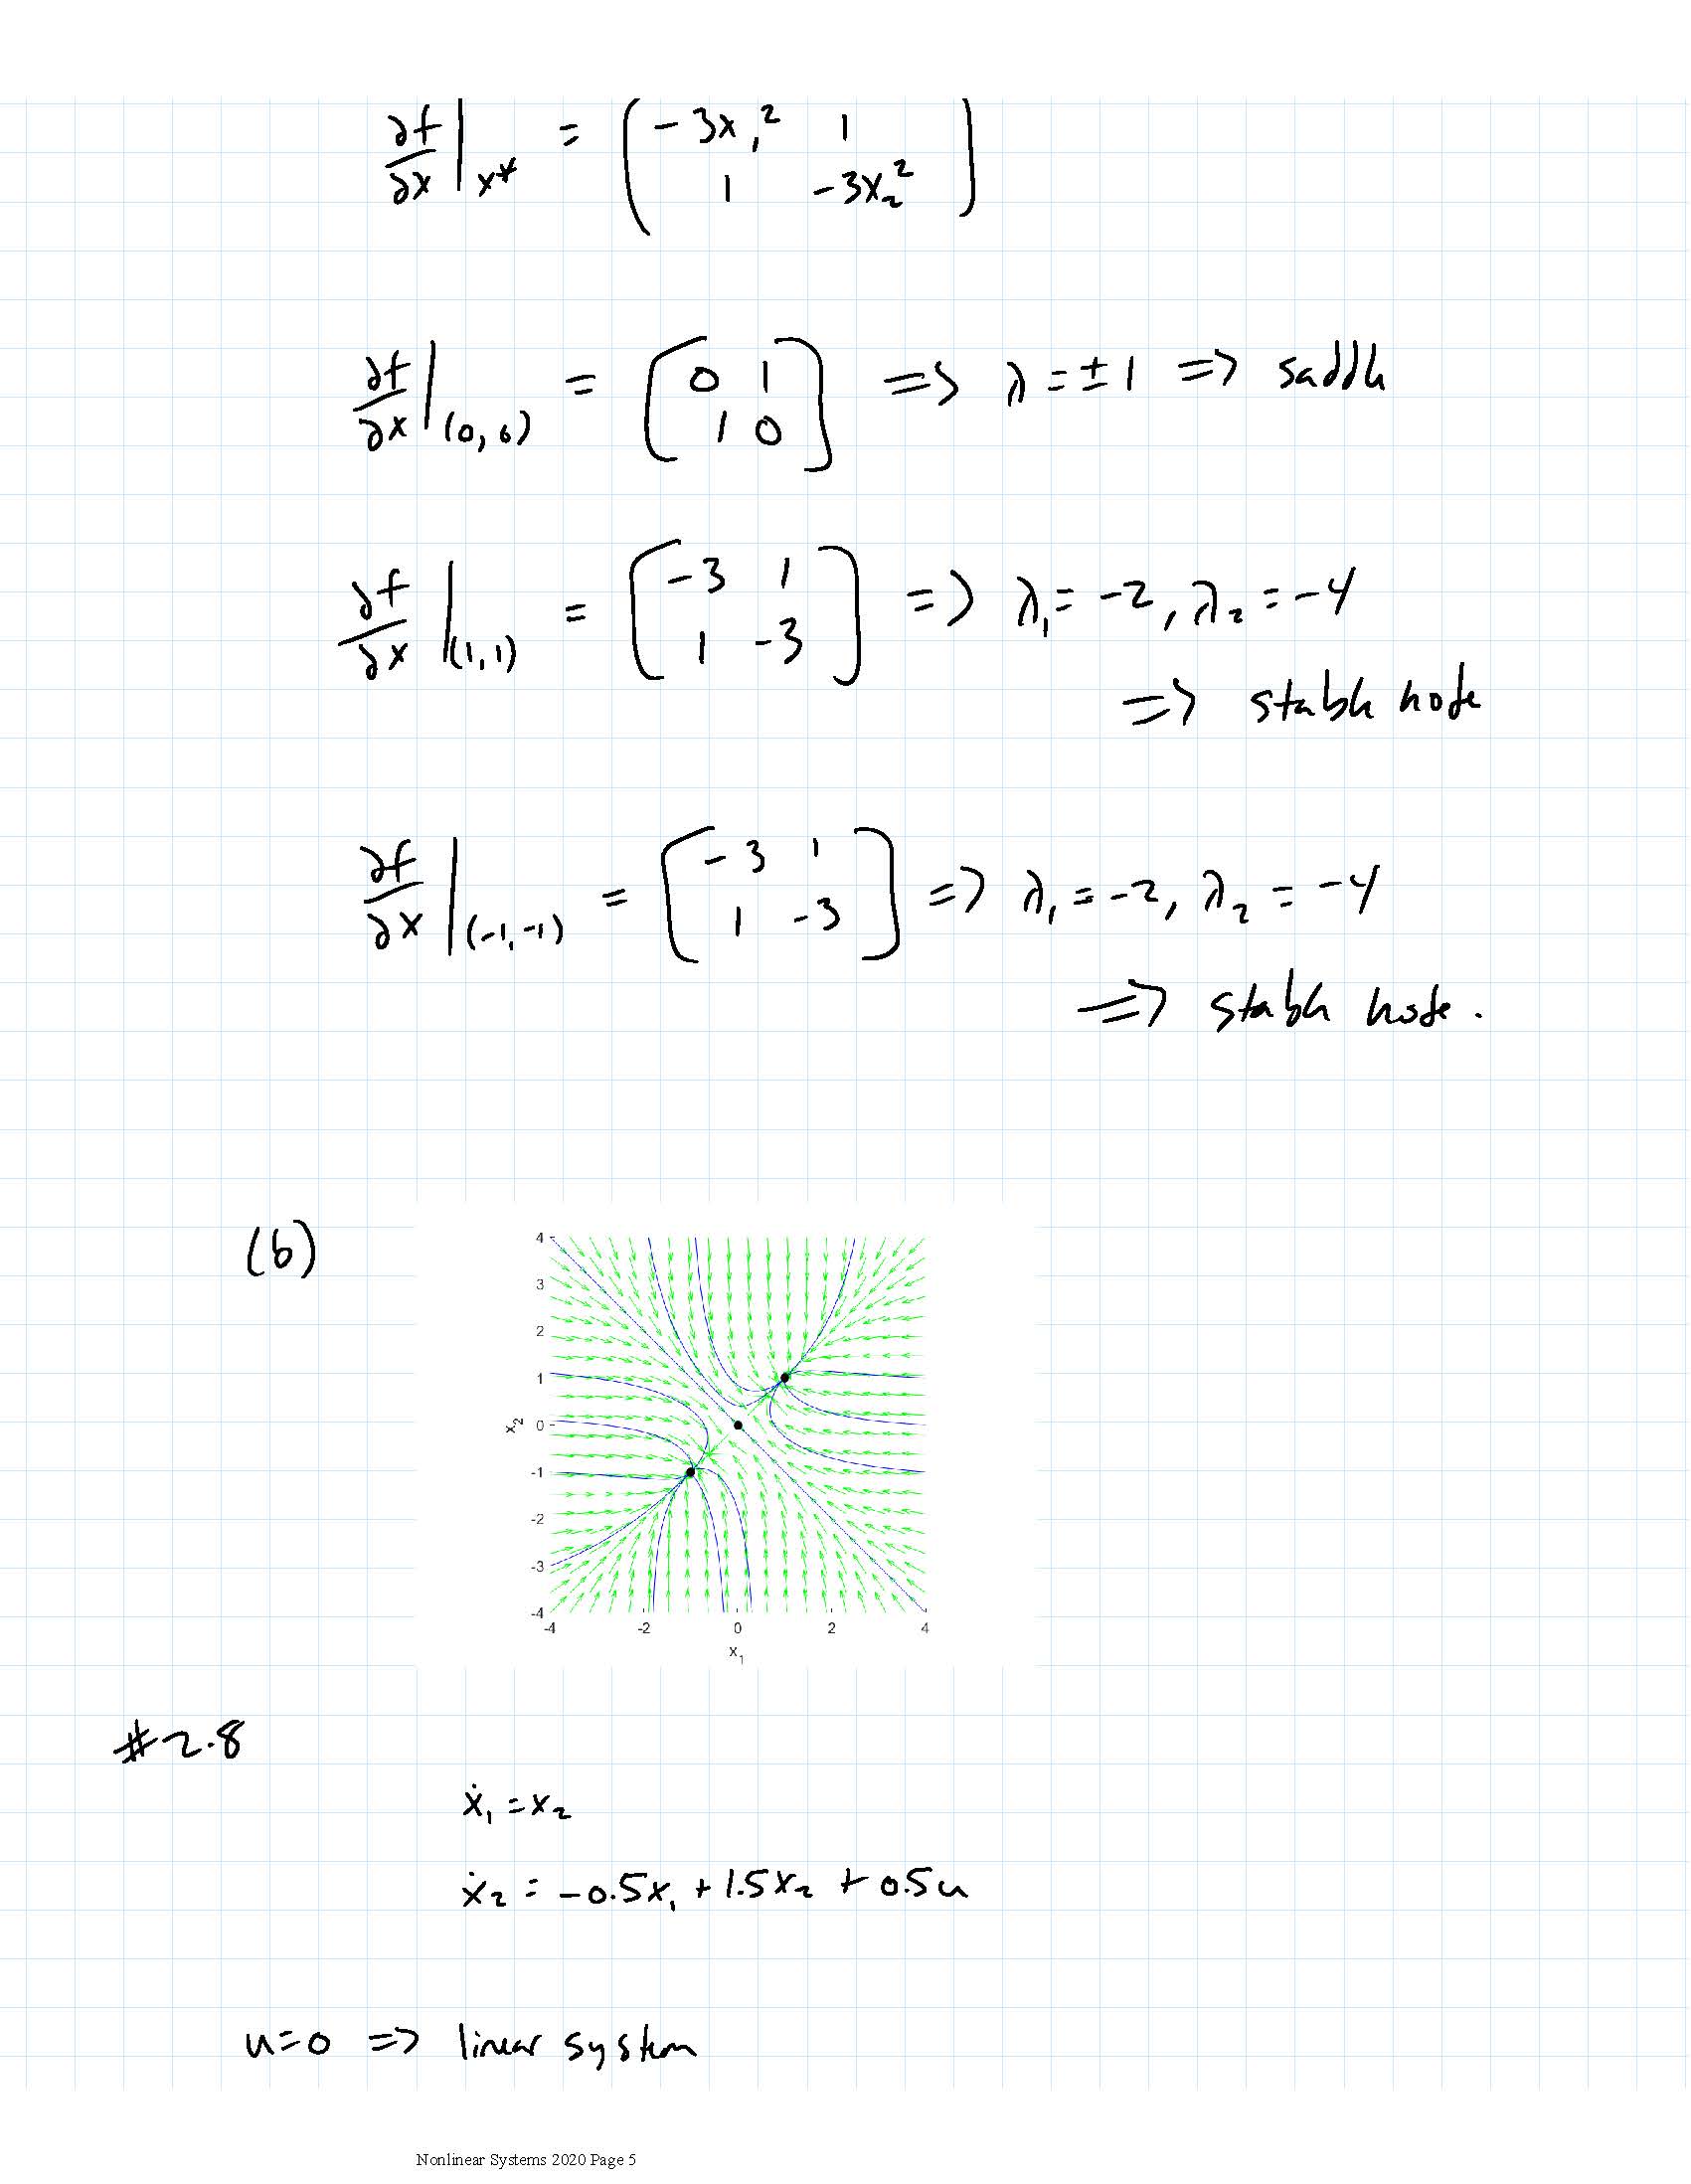 ∂f/∂x |x* = ( -3x₁² 1
1 -3x₂² )
∂f/∂x |(0,0) = [ 0 1
1 0 ] => λ = ±1 => saddle
∂f/∂x |(1,1) = [ -3 1
1 -3 ] => λ₁ = -2, λ₂ = -4
=> stable node
∂f/∂x |(-1,-1) = [ -3 1
1 -3 ] => λ₁ = -2, λ₂ = -4
=> stable node.
(b)
4
3
2
1
0
-1
-2
-3
-4
x₂
-4 -2 0 2 4
x₁
#2.8
ẋ₁ = x₂
ẋ₂ = -0.5x₁ + 1.5x₂ + 0.5u
u=0 => linear system
Nonlinear Systems 2020 Page 5